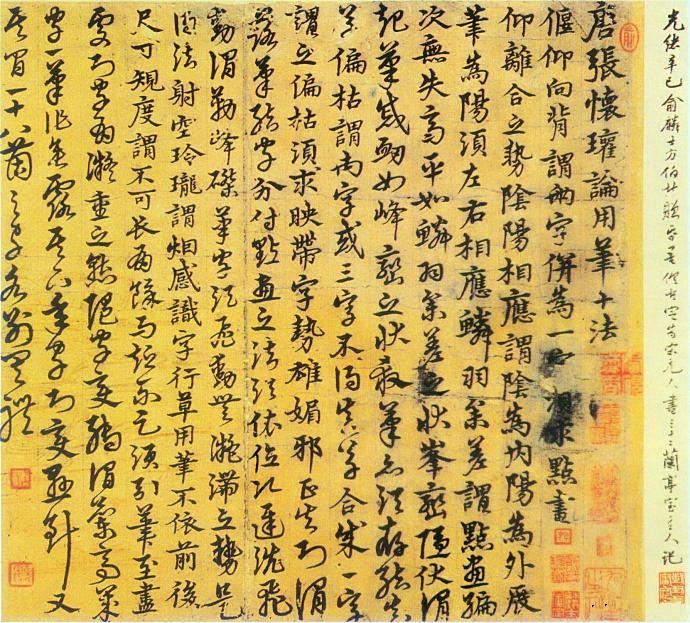 光緒辛巳俞麟士方伯所贈為宋元人書蘭亭室主人記
唐張懷瓘論用筆十法
偃仰向背謂兩字併為一須求點畫
仰離合之勢陰陽相應謂陰為內陽為外展
筆為陽須左右相應鱗羽參差謂點畫編
次無失高平如鱗羽參差之狀峯巒隱伏謂
起筆蹙衄如峰巒之狀殺筆亦須存結真
草偏枯謂兩字或三字不得真草合成一字
謂之偏枯須求映帶字勢雄媚邪正失則謂
落筆結字分付點畫之法須依位次遲澀飛
動謂勒峰磔筆字須飛動無凝滯之勢是
得法射空玲瓏謂烟感識字行草用筆不依前後
尺寸規度謂不可長有餘而短不足須引筆至盡
處則字有凝重之態隨字變轉謂蘭亭歲
字一筆作垂露其上年字則變懸針又
其間一十八箇之字各別有體